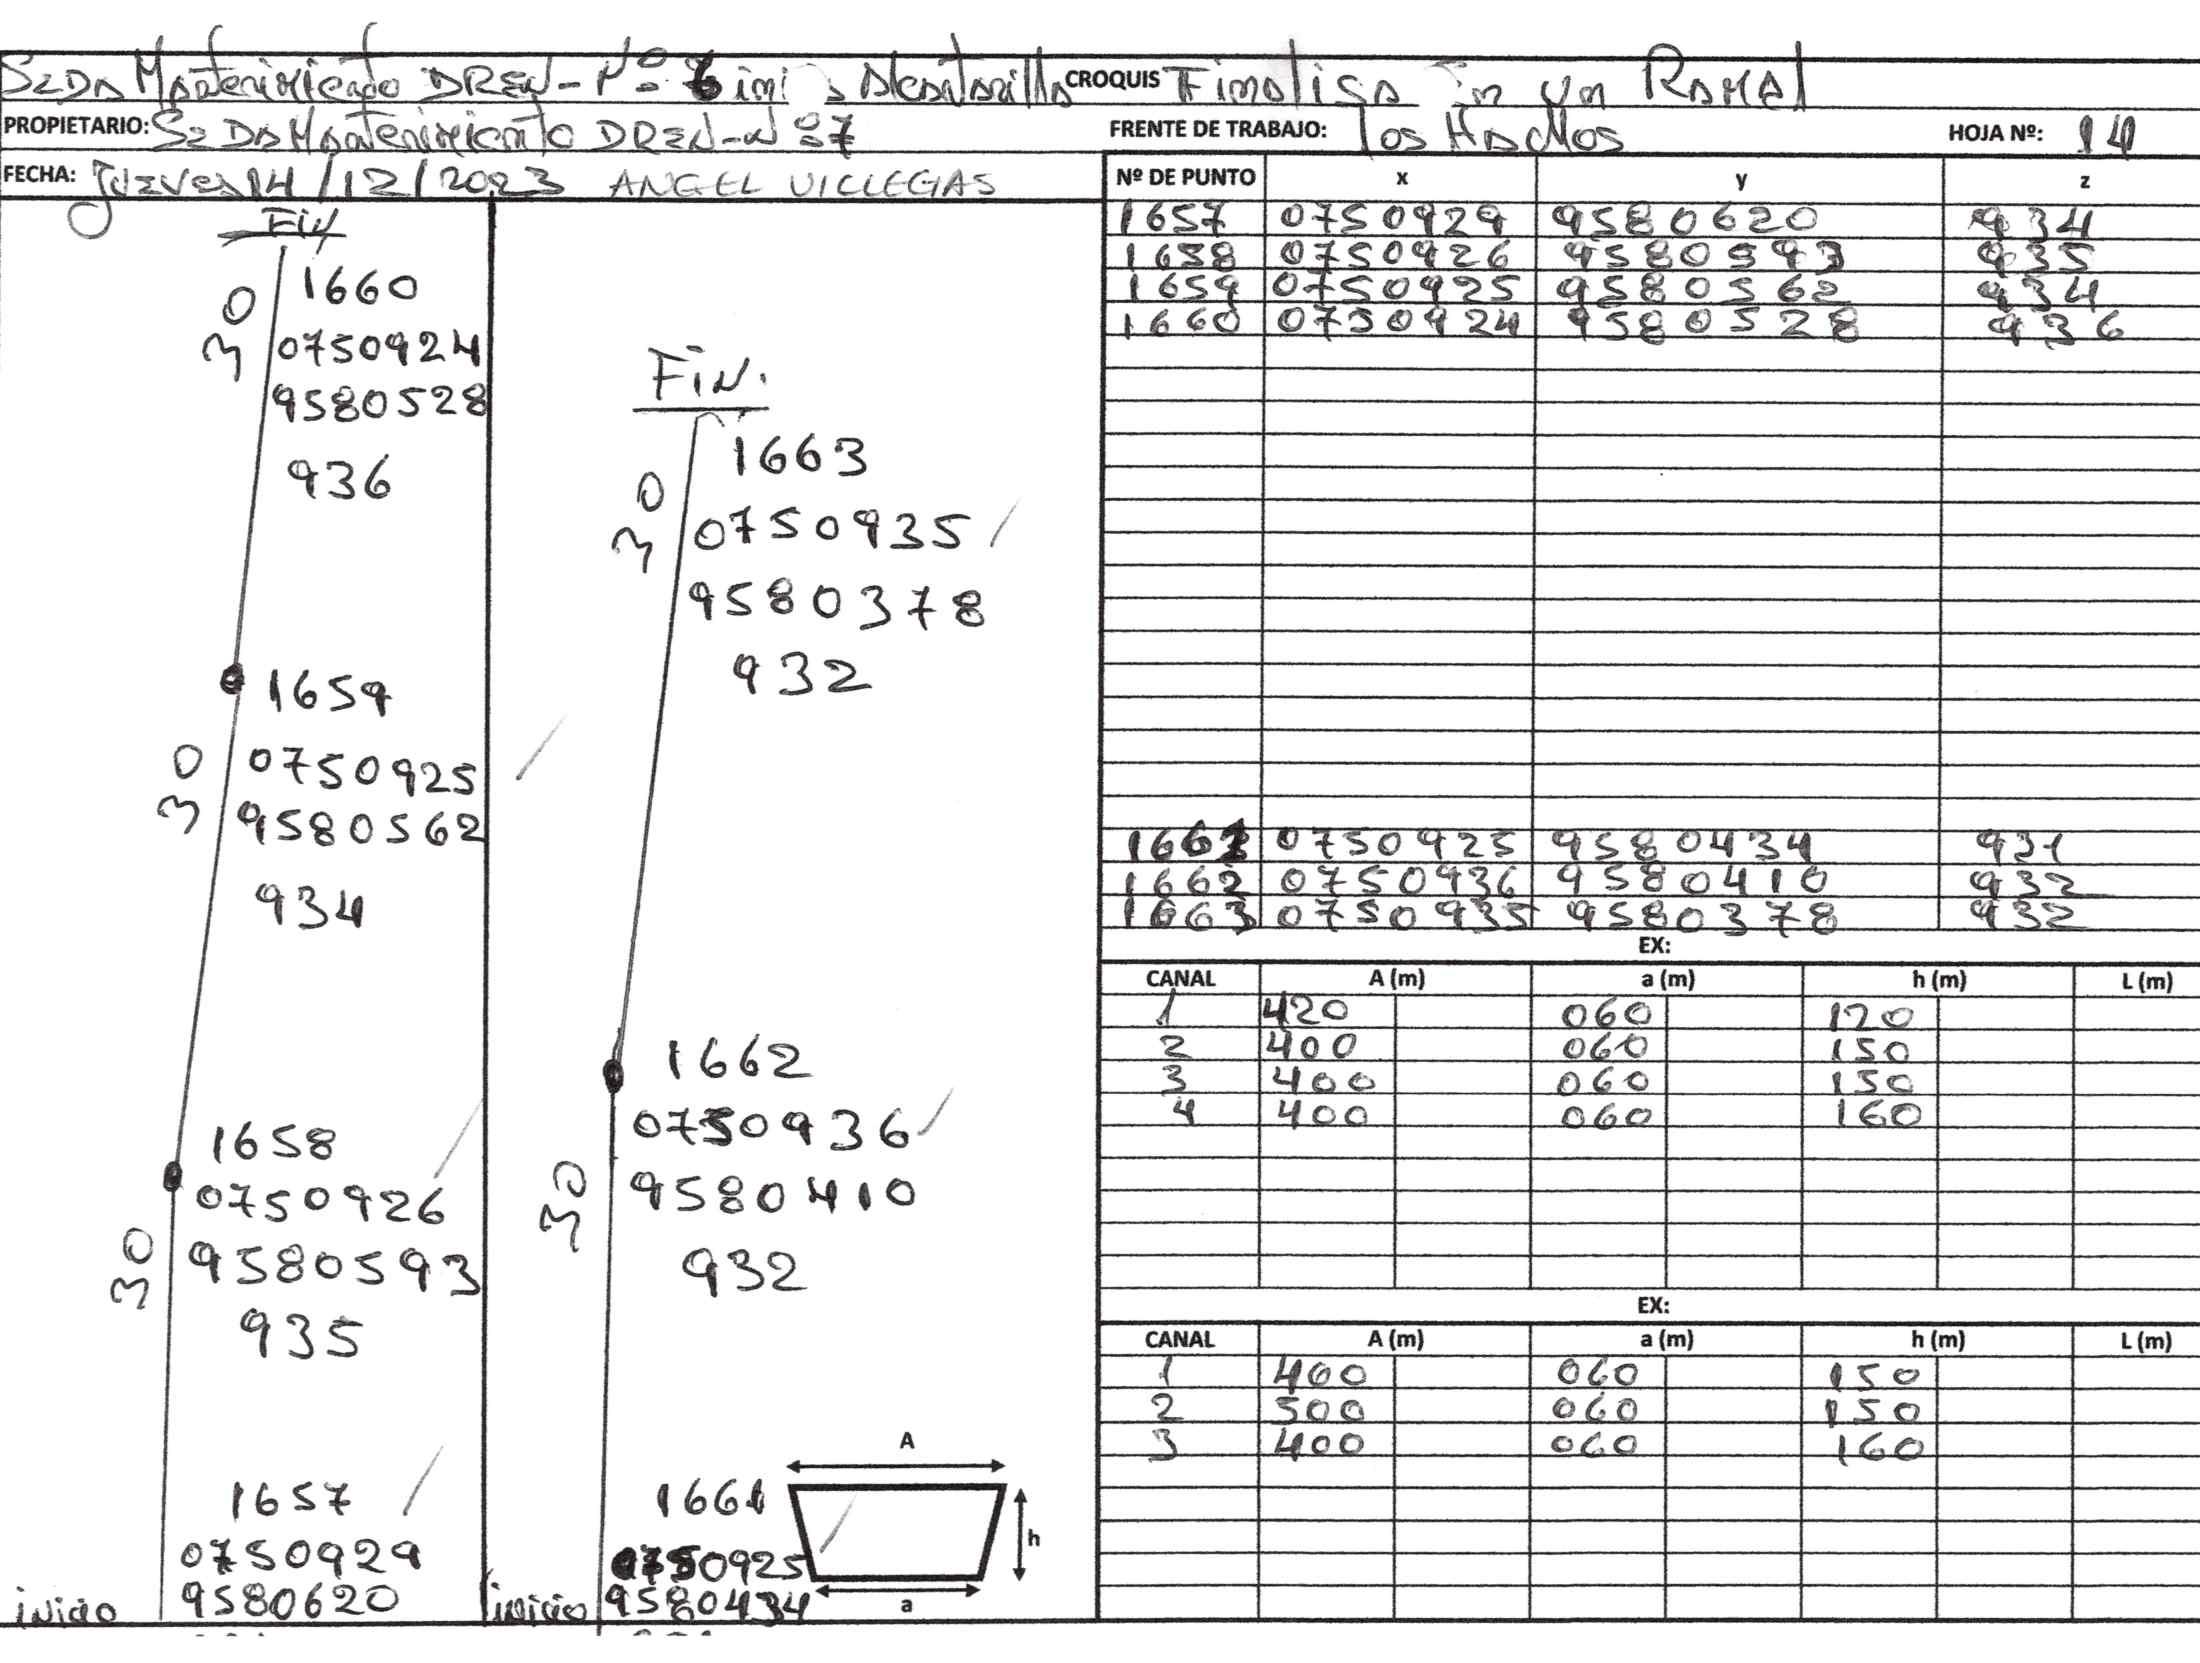 Mantenimiento DREN-Nº CROQUIS Finaliza En Un RAMAl
PROPIETARIO: Mantenimiento DREN-Nº 7 FRENTE DE TRABAJO: los HACHOS HOJA Nº: 14
FECHA: Jueves 14/12/2023 ANGEL VILLEGAS
Fin
1660
30
0750924
9580528
936
1659
30
0750925
9580562
934
1658
0750926
30
9580593
935
1657
0750929
9580620
inicio
Fin.
1663
30
0750935
9580378
932
1662
0750936
30
9580410
932
1661
0750925
inicio 9580434
A
h
a
Nº DE PUNTO x y z
1657 0750929 9580620 934
1658 0750926 9580593 935
1659 0750925 9580562 934
1660 0750924 9580528 936
1661 0750925 9580434 931
1662 0750936 9580410 932
1663 0750935 9580378 932
EX:
CANAL A (m) a (m) h (m) L (m)
1 420 060 120
2 400 060 150
3 400 060 150
4 400 060 160
EX:
CANAL A (m) a (m) h (m) L (m)
1 400 060 150
2 500 060 150
3 400 060 160